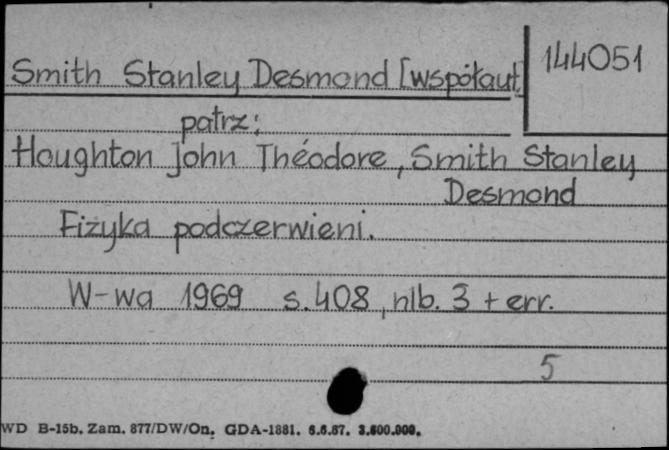 144051
Smith Stanley Desmond [współaut.]
patrz:
Houghton John Théodore, Smith Stanley
Desmond
Fizyka podczerwieni.
W-wa 1969 s. 408, nlb. 3 + err.
5
WD B-15b. Zam. 877/DW/On. GDA-1881. 6.6.67. 3.600.000.